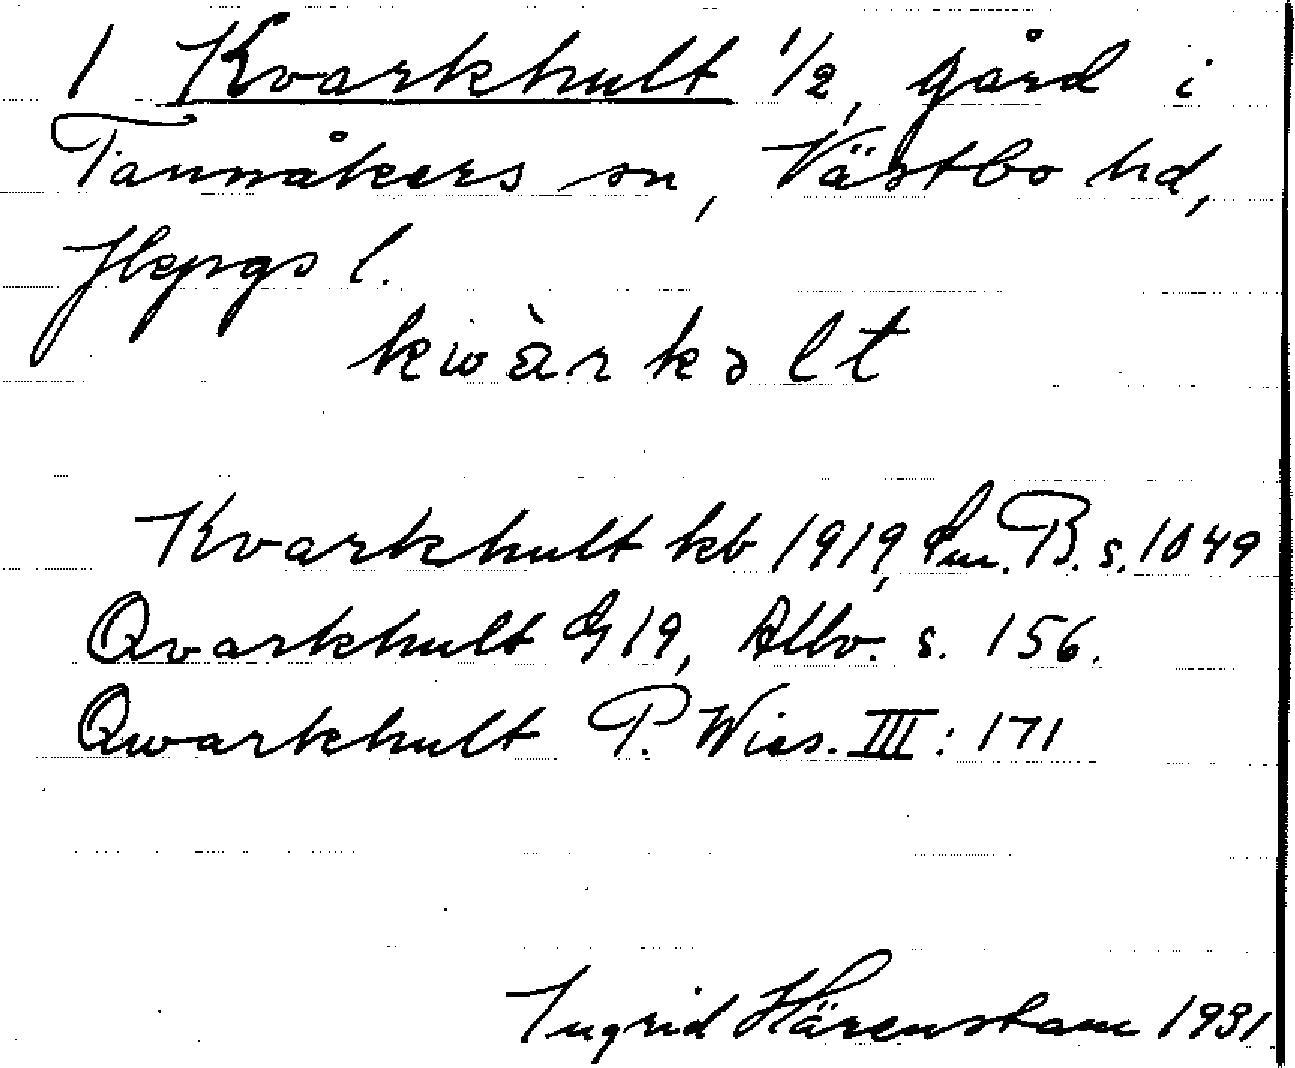 1 Kvarkhult 1/2, gård i
Tannåkers sn, Västbo hd,
Jkpgs l.
kwàrkəlt
Kvarkhult kb 1919, Liu. B. s. 1049
Qvarkhult G 19, Allbo. s. 156.
Qwarkhult P. Wies. III: 171
Ingrid Härenstam 1931